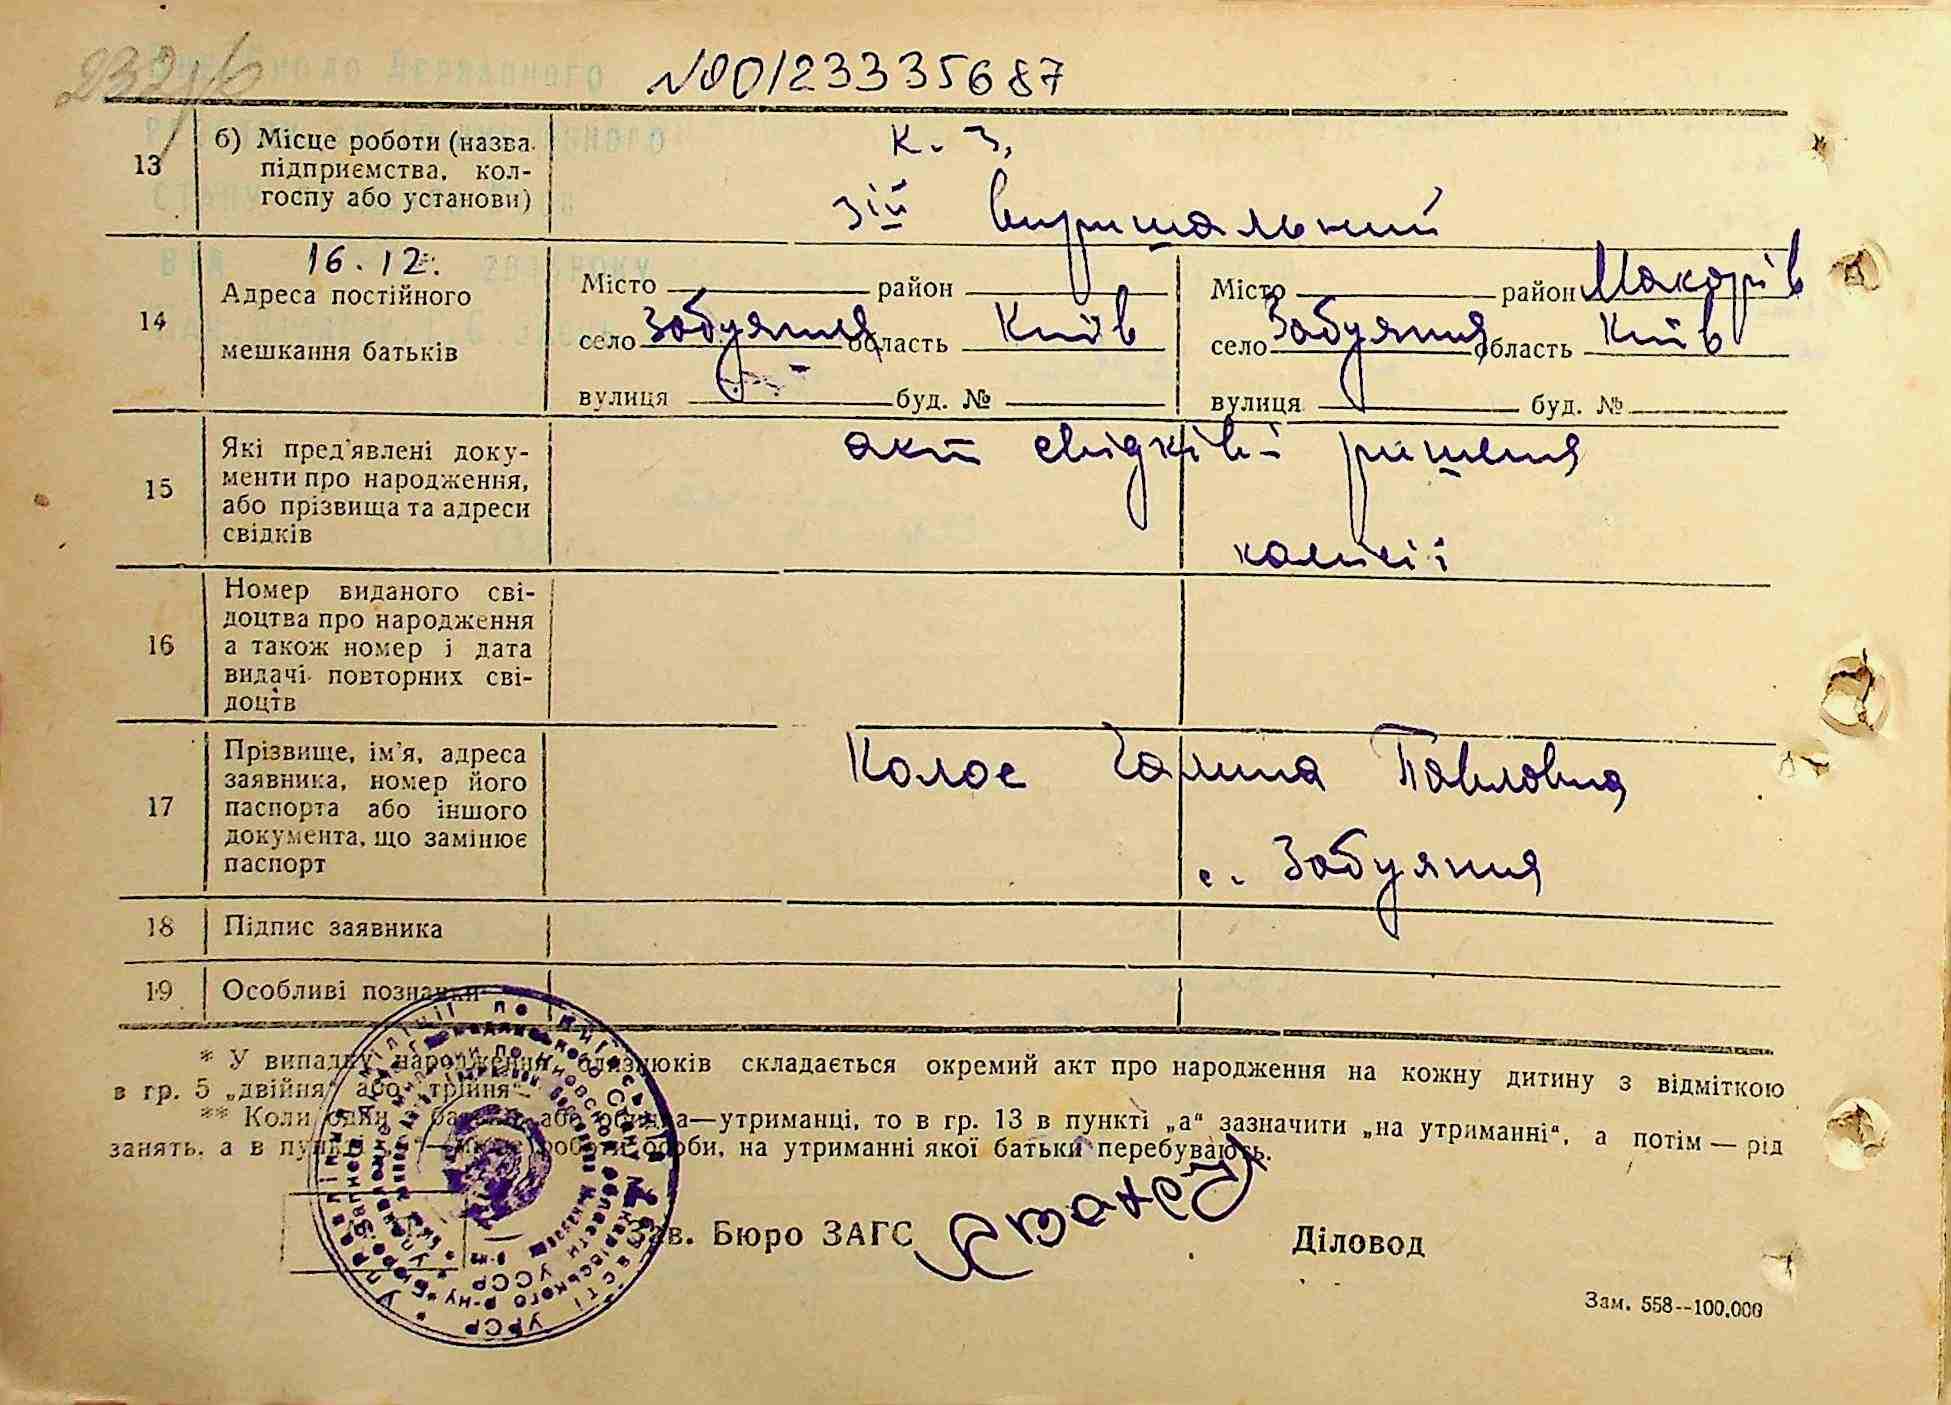 №00123335687
13
б) Місце роботи (назва
підприємства, кол-
госпу або установи)
к. з,
вирішальний
14
16.12.
Адреса постійного
мешкання батьків
Місто район
село Забуяння область Київ
вулиця буд. №
Місто район Макарів
село Забуяння область Київ
вулиця буд. №
15
Які пред'явлені доку-
менти про народження,
або прізвища та адреси
свідків
акт свідків і рішення
комісії
16
Номер виданого сві-
доцтва про народження
а також номер і дата
видачі повторних сві-
доцтв
17
Прізвище, ім'я, адреса
заявника, номер його
паспорта або іншого
документа, що замінює
паспорт
Колос Галина Павловна
с. Забуяння
18 Підпис заявника
19 Особливі познаки
* У випадку народження близнюків складається окремий акт про народження на кожну дитину з відміткою
в гр. 5 „двійня“ або „трійня“.
** Коли один з батьків або обидва—утриманці, то в гр. 13 в пункті „а“ зазначити „на утриманні“, а потім — рід
занять, а в пункті „б“—місце роботи особи, на утриманні якої батьки перебувають.
Зав. Бюро ЗАГС
Діловод
Зам. 558--100.000